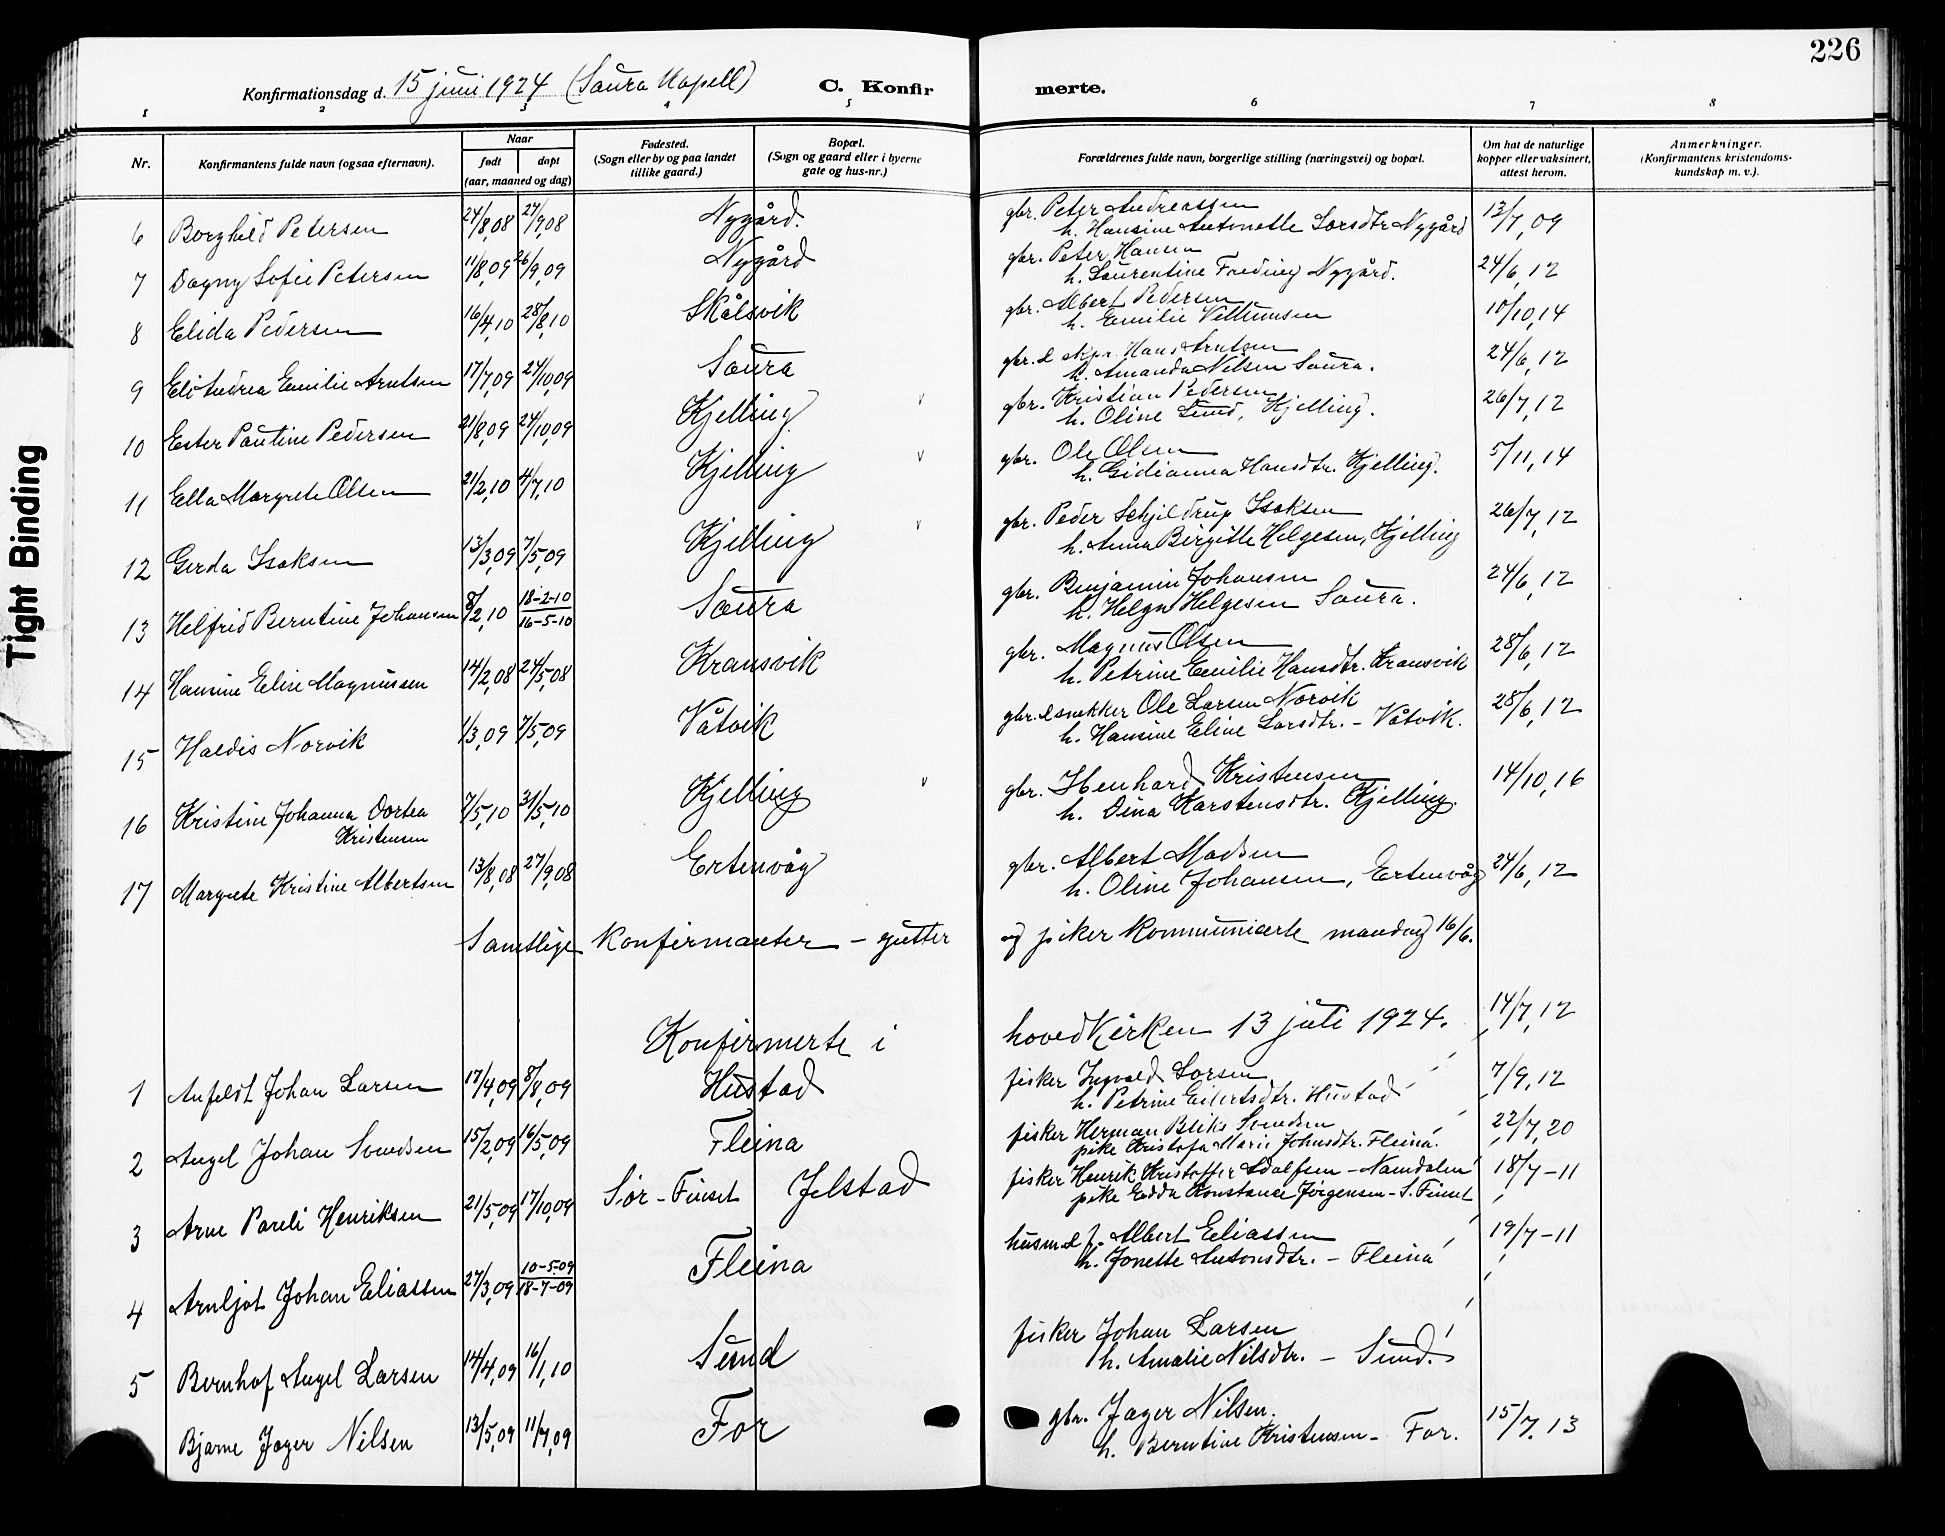 226
Konfirmationsdag d. 15 juni 1924 (Saura Kapell) C. Konfirmerte.
1 2 3 4 5 6 7 8
Nr. Konfirmantens fulde navn (ogsaa efternavn). Naar født døpt (aar, maaned og dag) Fødested. (Sogn eller by og paa landet tillike gaard.) Bopæl. (Sogn og gaard eller i byerne gate og hus-nr.) Forældrenes fulde navn, borgerlige stilling (næringsvei) og bopæl. Om hat de naturlige kopper eller vaksinert, attest herom. Anmerkninger. (Konfirmantens kristendoms-kundskap m. v.)
6 Borghild Petersen 24/8,08 27/9,08 Nygård. gbr. Peter Andreassen 13/7,09
h. Hansine Antonette Larsdtr Nygård
7 Dagny Sofie Petersen 11/8,09 26/9,09 Nygård gbr. Peter Hansen 24/6,12
h. Laurentine Nygård.
8 Elida Pedersen 16/4,10 28/8,10 Skålsvik gbr. Albert Pedersen 10/10,14
h. Emilie
9 Eli Andrea Emilie Arntsen 17/7,09 24/10,09 Saura gbr. & skpr. Hans Arntsen 24/6,12
h. Amanda Nilsen Saura.
10 Ester Pauline Pedersen 21/8,09 24/10,09 Kjelling v gbr. Kristian Pedersen 26/7,12
h. Oline Lund, Kjelling.
11 Ella Margrete Olsen 21/2,10 4/7,10 Kjelling v gbr. Ole Olsen 5/11,14
h. Gidianna Hansdtr. Kjelling.
12 Gerda Isaksen 13/3,09 7/5,09 Kjelling v gbr. Peder Schjeldrup Isaksen 26/7,12
h. Anna Birgitte Helgesen, Kjelling
13 Helfrid Berntine Johansen 8/2,10 18-2-10 16-5-10 Saura gbr. Benjamin Johansen 24/6,12
h. Helga Helgesen Saura.
14 Hansine Eline Magnussen 14/2,08 24/5,08 Kransvik gbr. Magnus Olsen 28/6,12
h. Petrine Emilie Hansdtr. Kransvik
15 Haldis Norvik 1/3,09 7/5,09 Våtvik gbr. & snekker Ole Larsen Norvik 28/6,12
h. Hansine Eline Larsdtr. - Våtvik.
16 Kristine Johanna Dortea 7/5,10 31/5,10 Kjelling v gbr. Henhard Kristensen 14/10,16
Kristensen h. Dina Karstensdtr. Kjelling.
17 Margrete Kristine Albertsen 13/8,08 27/9,08 Ertenvåg gbr. Albert Madsen 24/6,12
h. Oline Johansen, Ertenvåg
Samtlige konfirmanter - gutter og piker kommunicerte mandag 16/6.
Konfirmerte i hovedkirken 13 juli 1924. 14/7,12
1 Anfeldt Johan Larsen 17/4,09 8/8,09 Hustad fisker Ingvald Larsen 7/9,12
h. Petrine Eilertsdtr. Hustad
2 Angel Johan Svendsen 15/2,09 16/5,09 Fleina fisker Herman Bliks Svendsen 22/7,20
pike Kristofa Marie Johnsdtr. Fleina.
3 Arne Pareli Henriksen 21/5,09 17/10,09 Sør-Finset Jelstad fisker Henrik Kristoffer Adolfsen - Namdalen 18/7-11
pike Edda Konstance Jørgensen - S. Finset
4 Arnljot Johan Eliassen 27/3,09 10-5-09 18-7-09 Fleina husm. & f. Albert Eliassen 19/7-11
h. Jonette Antonsdtr. - Fleina
5 Bernhof Angel Larsen 14/4,09 16/1,10 Sund fisker Johan Larsen
h. Amalie Nilsdtr. - Sund.
Bjarne Jager Nilsen 13/5,09 11/7,09 For gbr. Jager Nilsen. 15/7.13
h. Berntine Kristensen - For.
Tight Binding